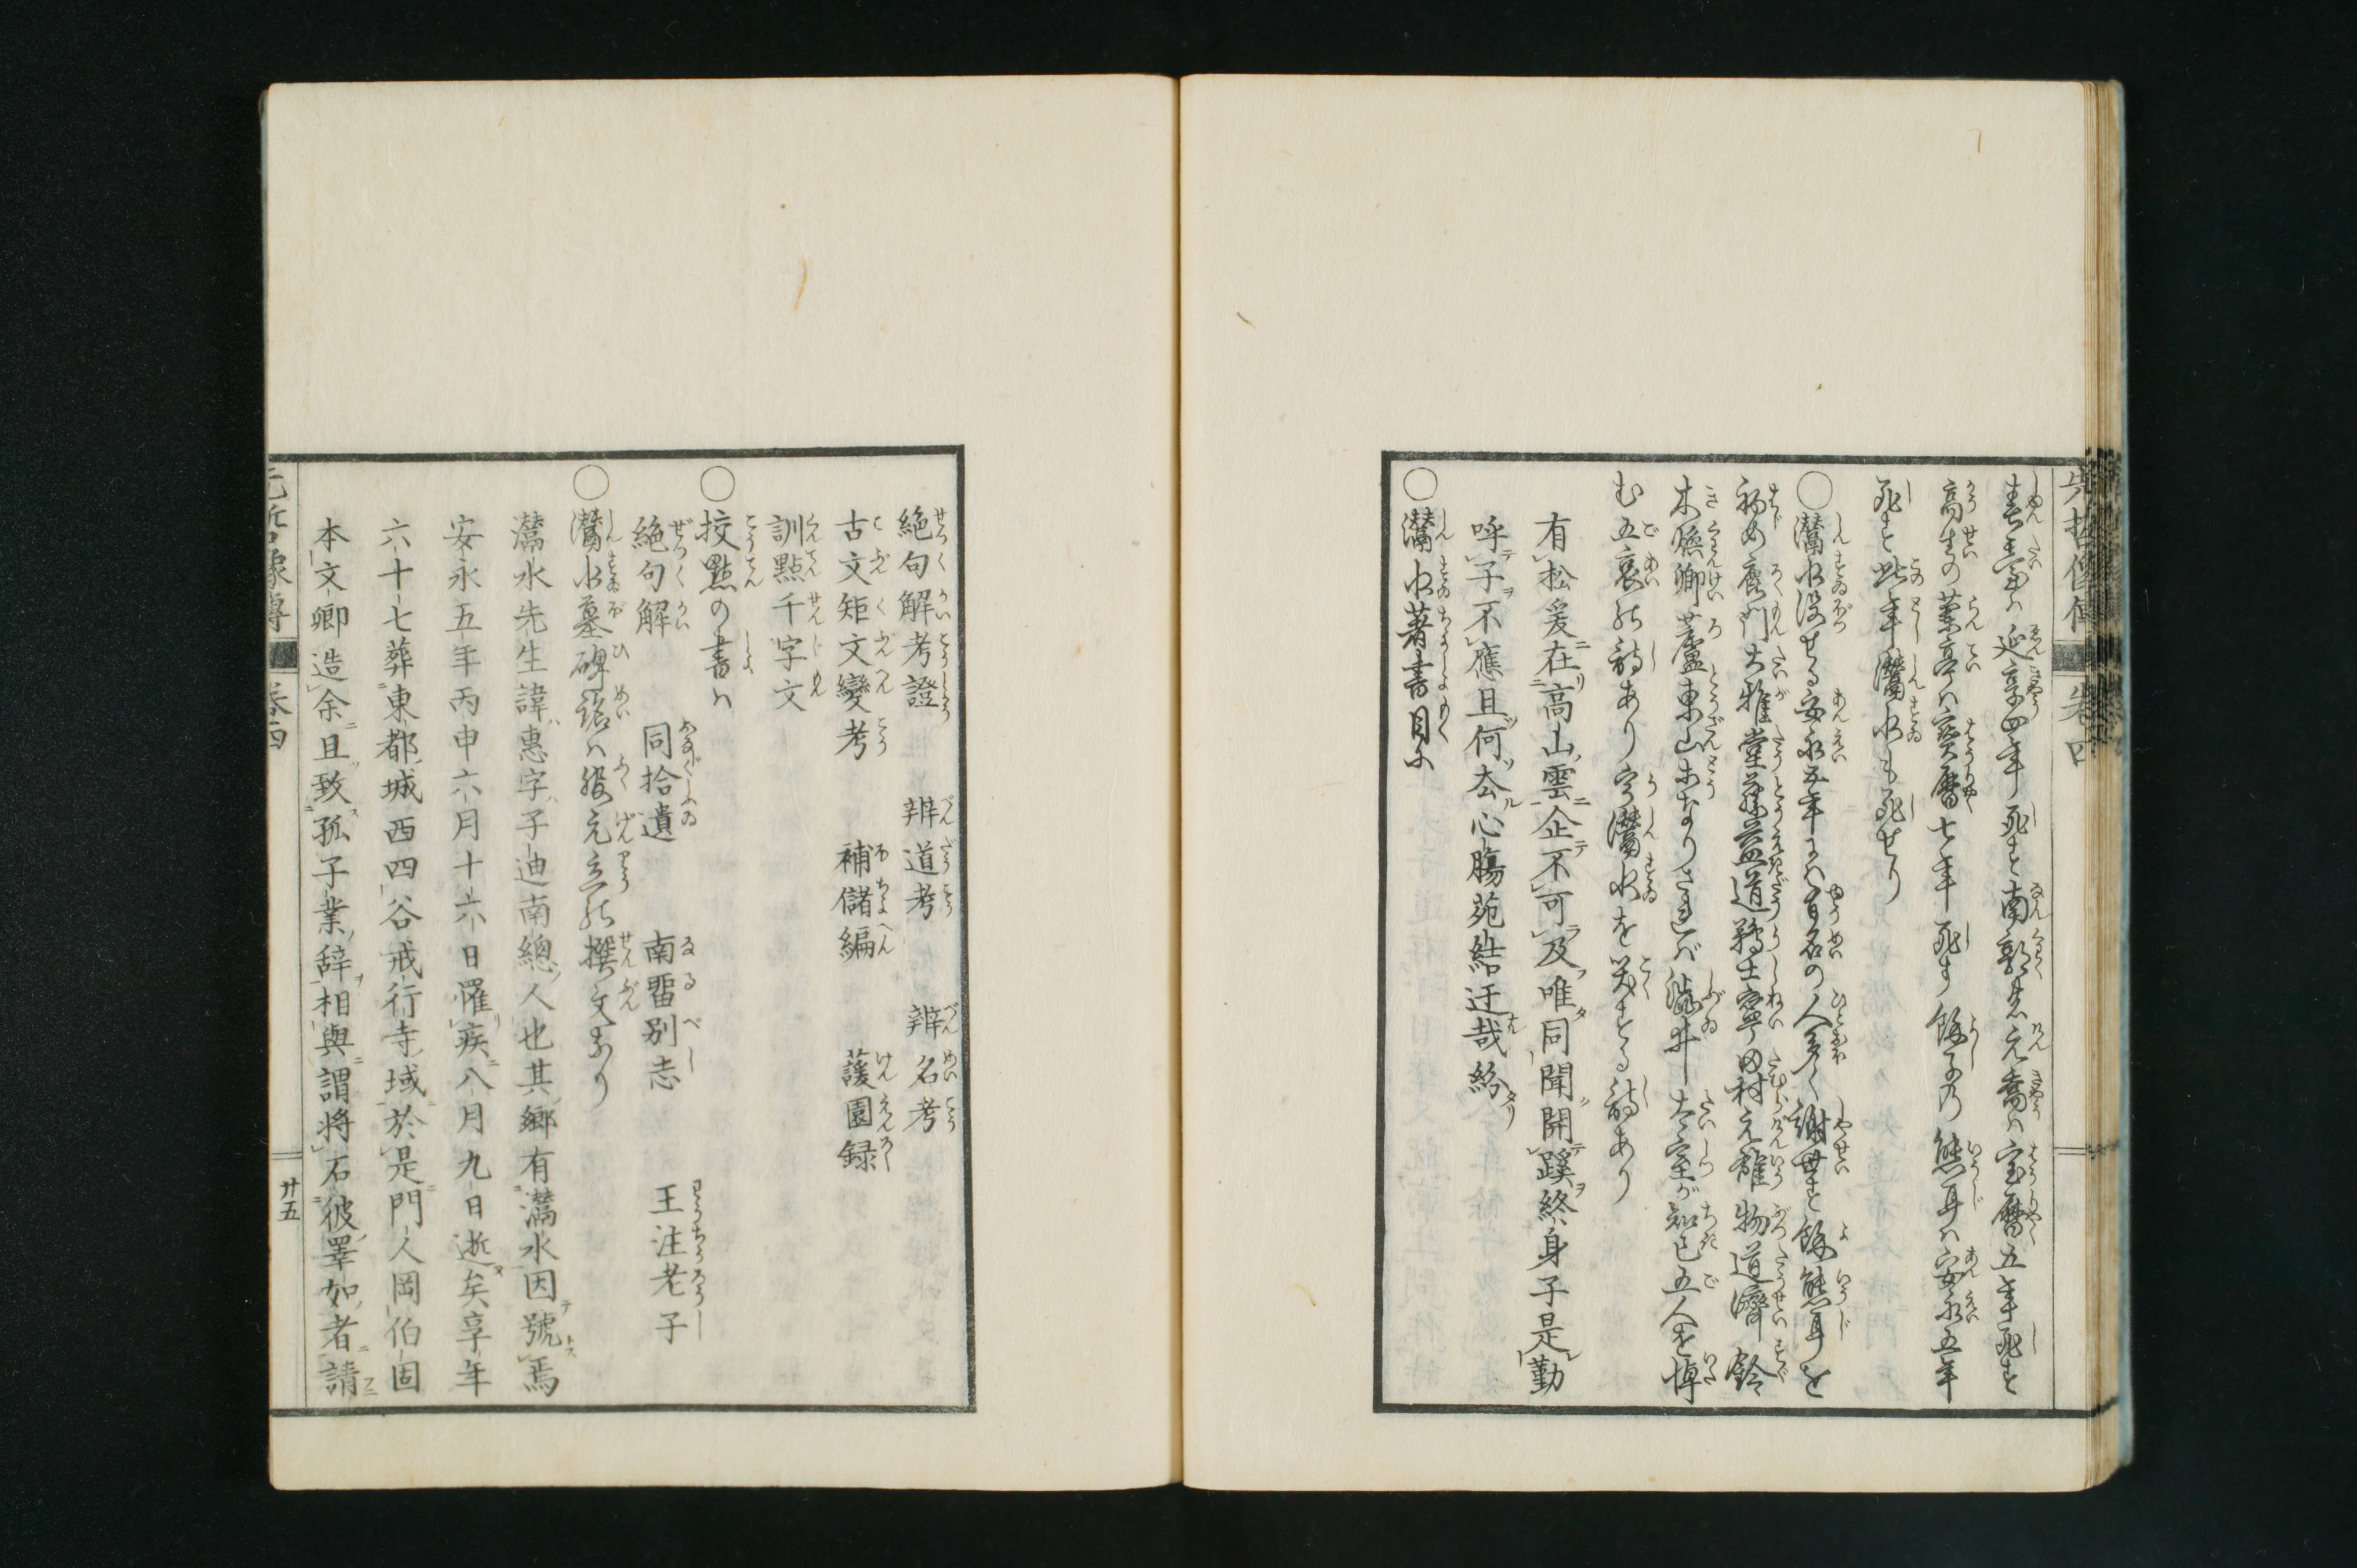 春臺ハ延享四年死す南郭先元喬ハ宝暦五年死す
高生の蘭亭ハ寶暦七年死す餘子乃熊耳ハ安永五年
死す此年灊水も死せり
○灊水没せる安永五年にハ有名の人多く謝世す餘熊耳を
初め鹿門大雅堂藤益道鵜士寧田村元雄物道濟鈴
木煥卿芦盧東山なりされバ澁井太室が知已五人を悼
む五哀の詩あり灊水を哭する詩あり
有松爰在高山雲企不可及唯同聞開蹊終身子是勤
呼子不應且何厺心腸苑結迂哉紛
○灊水著書目ニ
絶句解考證 辨道考 辨名考
古文矩文變考 補儲編 蘐園録
訓點千字文
○挍點の書ハ
絶句解 同拾遺 南畱别志 王注老子
○灊水墓碑銘ハ服元立の撰文あり
灊水先生諱惠字子迪南總人也其郷有灊水因號焉
安永五年丙申六月十六日罹疾八月九日逝矣享年
六十七葬東都城西四谷戒行寺域於是門人岡伯固
本文卿造余且致孤子業辞相與謂将石彼睪如者請
先哲像傳 卷四
廿五